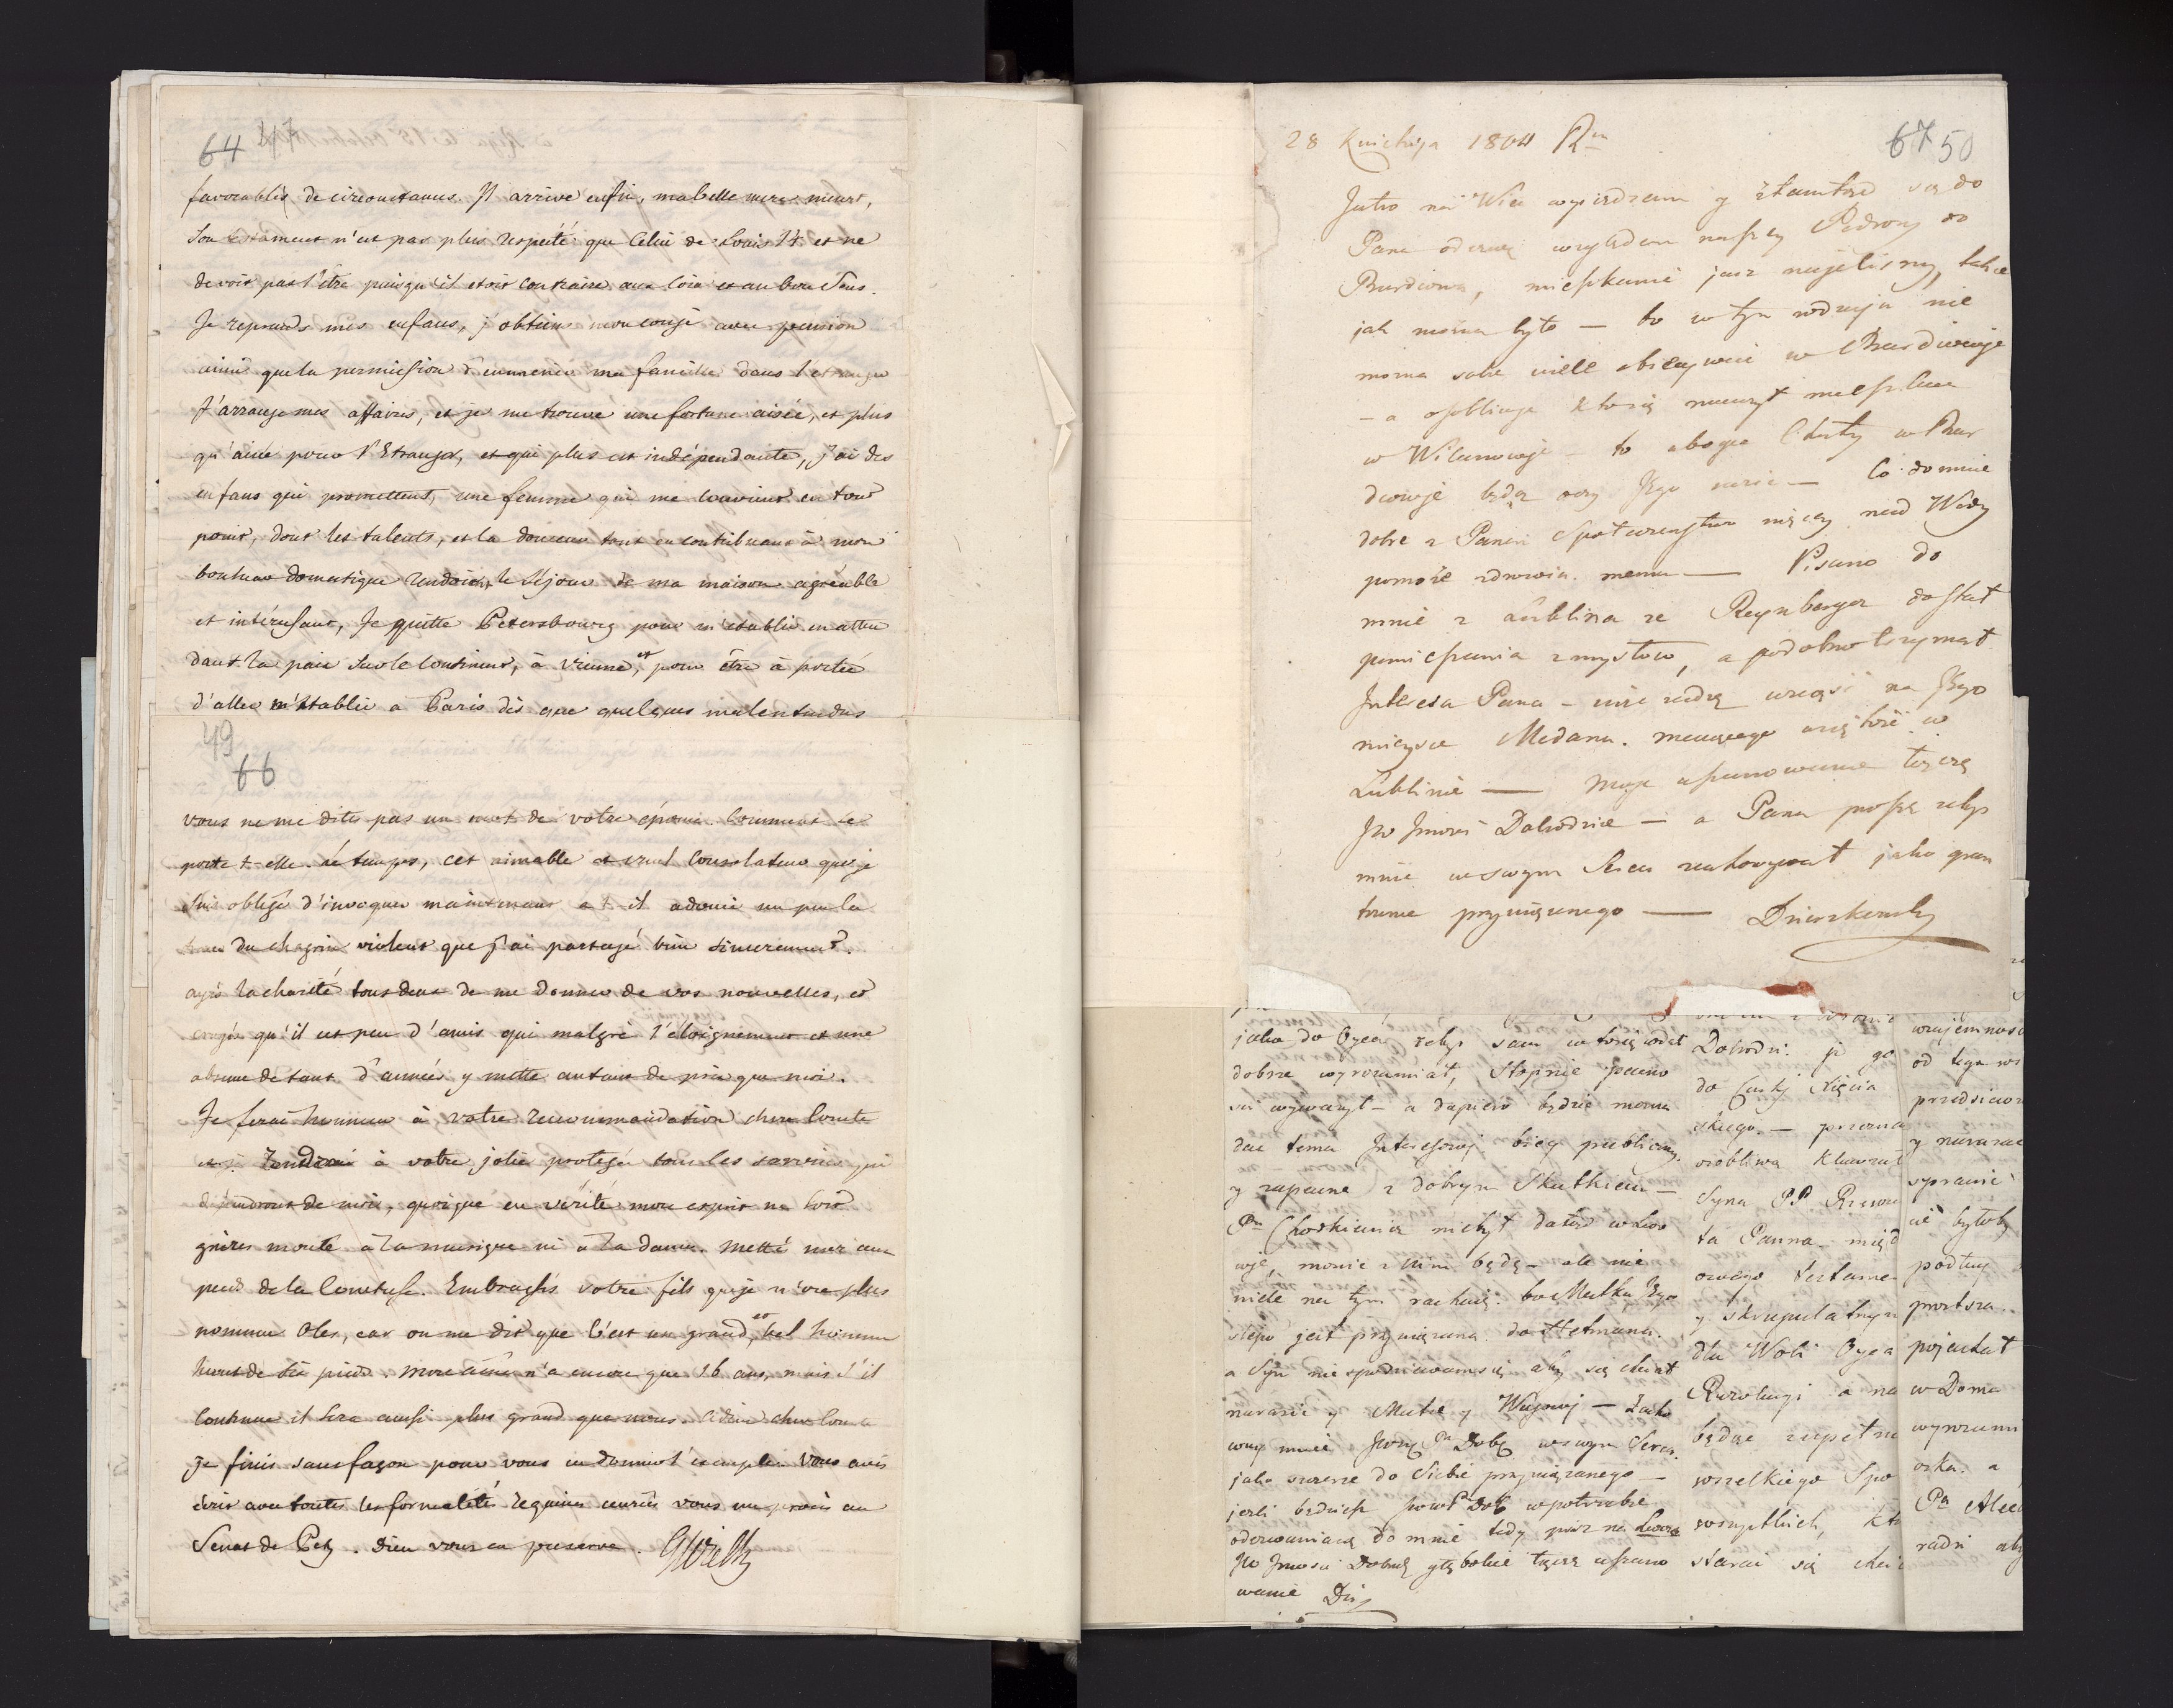 64 47
favorables de circonstances. Il arrive enfin, ma belle mere meurt,
Son testament n'est pas plus respecté que Celui de Louis 14. et ne
devoit pas l'être puisqu'il etoit contraire aux loix et au bon Sens.
Je reprends mes enfans, j'obtiens mon congé avec pension
ainsi que la permission d'emmener ma famille dans l'etranger
J'arrange mes affaires, et je me trouve une fortune aisée, et plus
qu'aisée pour l'Etranger, et qui plus est indépendante, j'ai des
enfans qui promettent, une femme qui me convient en tout
point, dont les talents, et la douceur tout en contribuant à mon
bonheur domestique rendoient le séjour de ma maison agréable
et intéressant, Je quitte Petersbourg pour m'etablir en atten
dant la paix sur le Continent, à Vienne, et pour être à portée
d'aller m'établir a Paris dès que quelques malentendus
49
66
vous ne me dites pas un mot de votre épouse. Comment se
porte t-elle. le temps, cet aimable et cruel Consolateur que je
suis obligé d'invoquer maintenant a t-il adouci un peu la
du chagrin violent que j'ai partagé bien sincerement.
ayés la charité tous deux de me donner de vos nouvelles, et
croyés qu'il est peu d'amis qui malgré l'éloignement et une
absence de tant d'années y mette autant de prix que moi.
Je ferai honneur à votre recommandation cher Comte
et je rendrai à votre jolie protegée tous les services qui
dépendront de moi, quoique en vérité mon esprit ne soit
guères monté à la musique ni à la danse. Mettés moi aux
pieds de la Comtesse. Embrassés votre fils que je n'ose plus
nommer Oles, car on me dit que C'est un grand, et bel homme
haut de six pieds. Mon ainé n'a encore que 16 ans, mais s'il
Continue il sera aussi plus grand que nous. Adieu cher Comte
je finis sans façon pour vous en donner l'exemple. Vous avés
écrit avec toutes les formalités requises comme si vous
Senat de Petg. Dieu vous en preserve.
28 Kwietnia 1804 R
67 50
Jutro na Wieś wyjeżdzam y ztamtąd się do
Pana odezwę względem naszey Podrozy do
Bardiowa, mieszkanie jusz najeliśmy, takie
jak można było — bo w tym rodzaju nie
mozna sobie wiele obiecywać w Bardiowie
— a osobliwie kto się nauczył mieszkać
w Wilanowie - to ubogie Chaty w Bar
diowie będą oczy Jego — Co do mnie
dobre z Panem Spoteczeństwo więcey nad Wody
pomoże zdrowiu memu — Pisano do
mnie z Lublina że Reynberger dostał
pomieszania zmysłów, a podobno trzymał
Interesa Pana - nie radzę wziąść na Jego
mieysce Medana. w
Lublinie — Moje uszanowanie łączę
JW Jmości Dobrodzice — a Pana proszę żebyś
mnie w swym Sercu zachowywał jako grun
townie przywiązanego — Dzierzkowski
jako do Oyca żebyś sam
dobrze wyrozumiał, Stopnie pewno
a dopiero będzie można
dać temu Interesowi bieg publiczny
y zapewne z dobrym Skutkiem —
Pn Chodkiewicz
mowić z nim będę - ale nie
wiele na tym rachuię. bo Matka Jego
slepo jest przywiązana do Hetmana.
a Syn nie spodziewam się aby się chciał
narazić y Matce y Wujowi — Zacho
way mnie w swym Sercu
jako szczerze do Siebie przywiązanego —
jesli będziesz w potrzebie
odezwania się do mnie tedy pisz na Lwow
JW Jmości Dobrodz głębokie łączę uszano
wanie Dzi
Dobrodzi. ja go
do Xięcia
skiego. —
osobliwą
Syna PP.
ta Panna
owego testamen
y skrupulatnym
dla Woli Oyca
a na
będąc zupełn
wszelkiego Spo
wszystkich, kt
starać się
wzajemnosc
od tego
przedsiewz
y narazac
sprawić
było by
podług
pojechał
w Domu
wyrozum
a
Pn
radzi aby